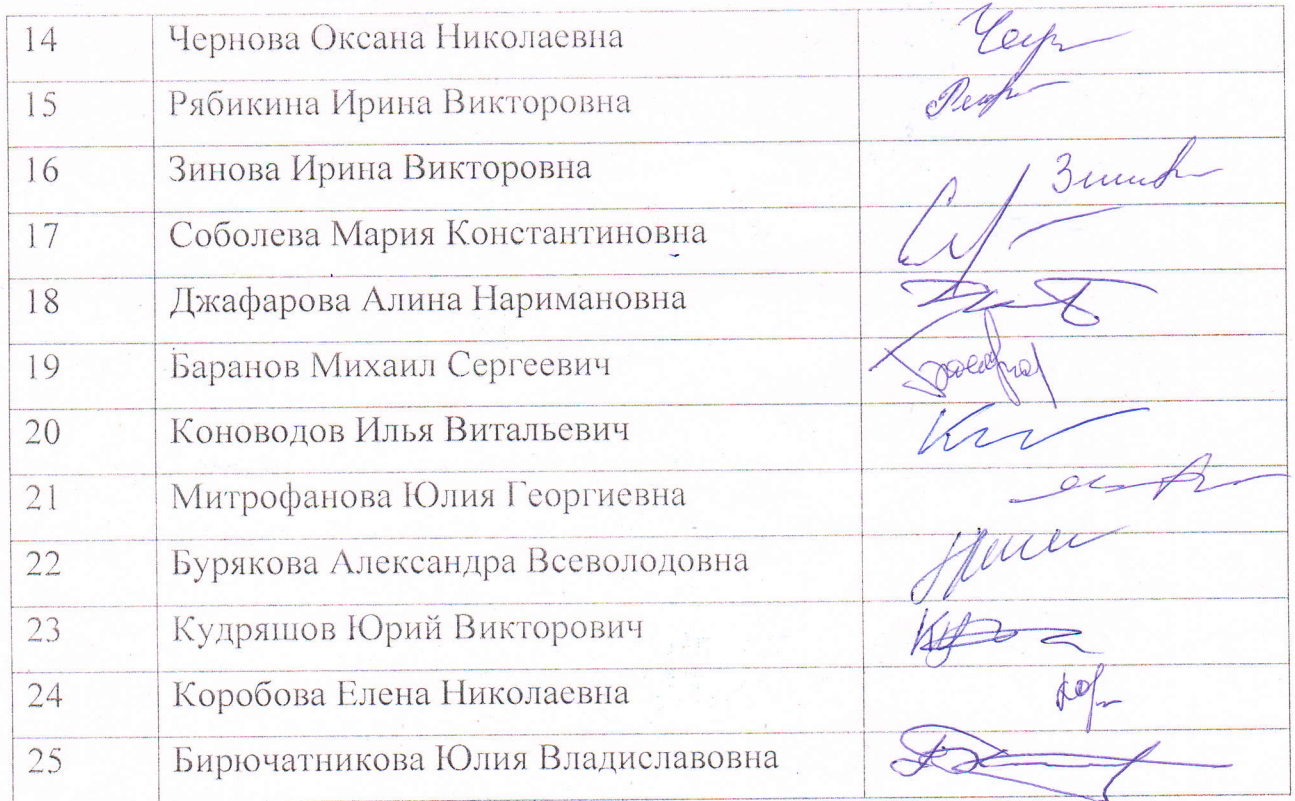 14 Чернова Оксана Николаевна
15 Рябикина Ирина Викторовна
16 Зинова Ирина Викторовна
17 Соболева Мария Константиновна
18 Джафарова Алина Наримановна
19 Баранов Михаил Сергеевич
20 Коноводов Илья Витальевич
21 Митрофанова Юлия Георгиевна
22 Бурякова Александра Всеволодовна
23 Кудряшов Юрий Викторович
24 Коробова Елена Николаевна
25 Бирючатникова Юлия Владиславовна